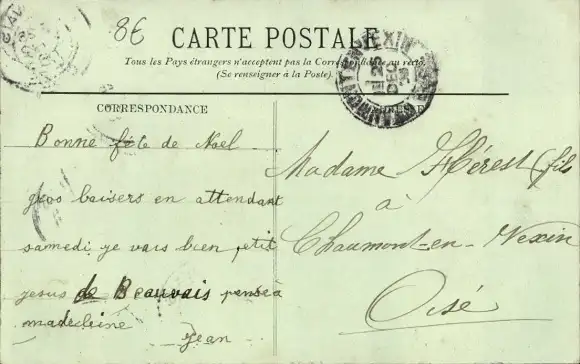 8€
CARTE POSTALE
Tous les Pays étrangers n'acceptent pas la Correspondance au recto.
(Se renseigner à la Poste).
CORRESPONDANCE
Bonne fête de Noel
gros baisers en attendant
samedi je vais bien petit
jesus de Beauvais pense à
madeleine
Jean
Madame Hérest (fils
à
Chaumont-en-Vexin
Oise